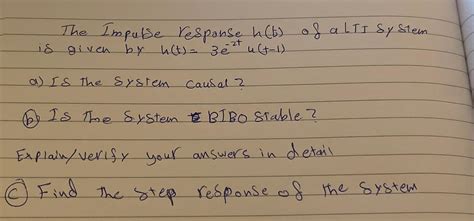 The Impulse response h(t) of a LTI System
is given by h(t) = 3e^-2t u(t-1)
a) Is the System causal?
(b) Is the System BIBO stable?
Explain/verify your answers in detail
(c) Find the step response of the system